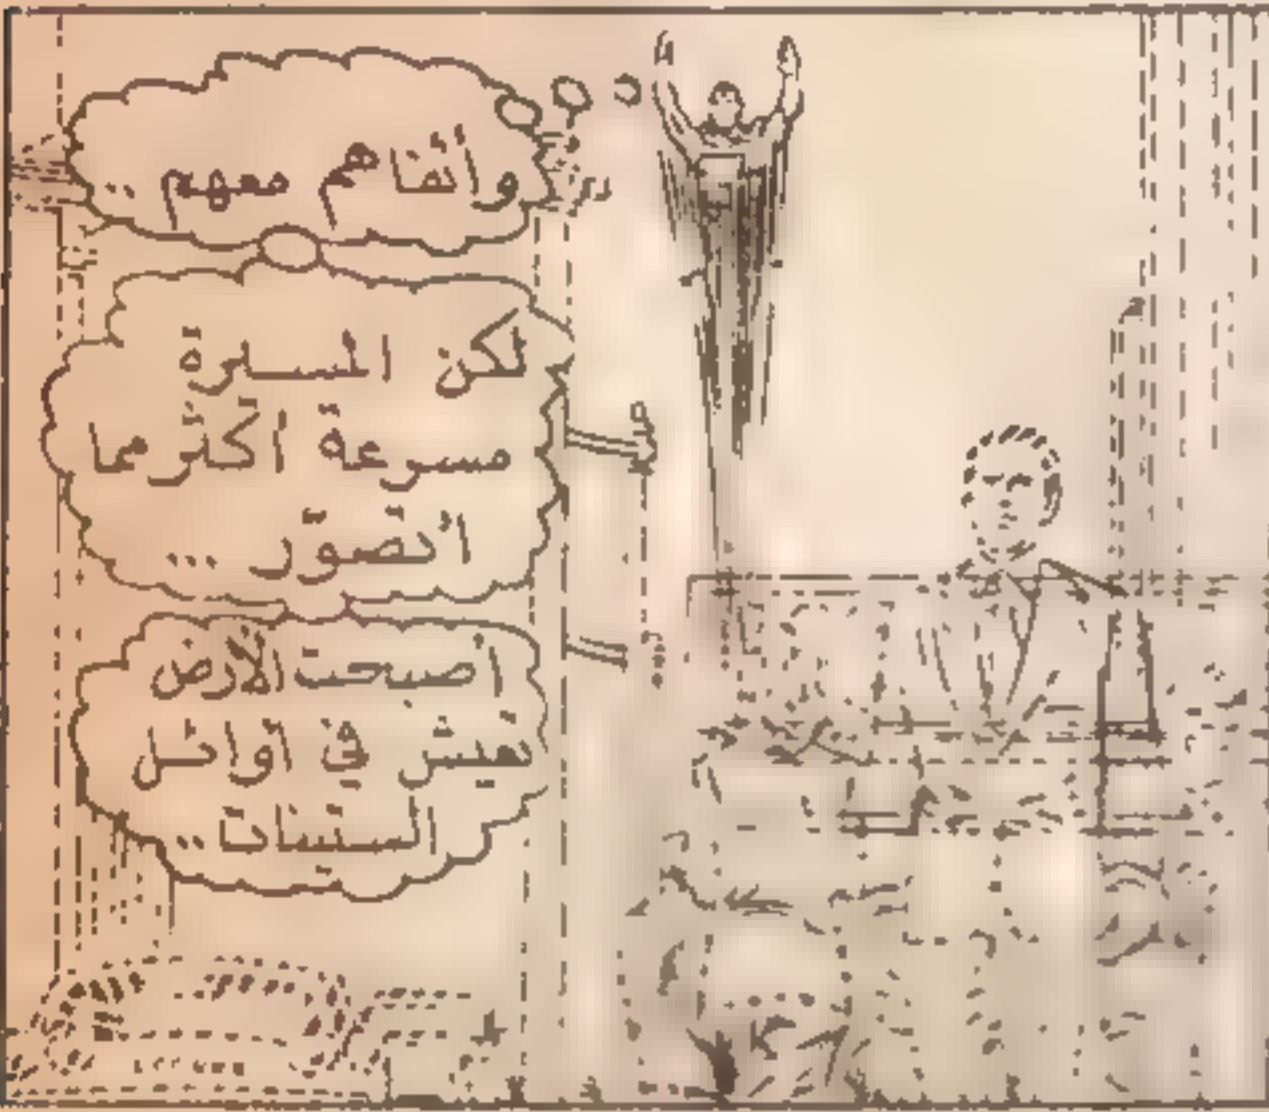 وأتفاهم معهم ..
لكن المسيرة
مسرعة أكثر مما
أتصوّر ...
أصبحت الأرض
تعيش في أوائل
الستينات ..